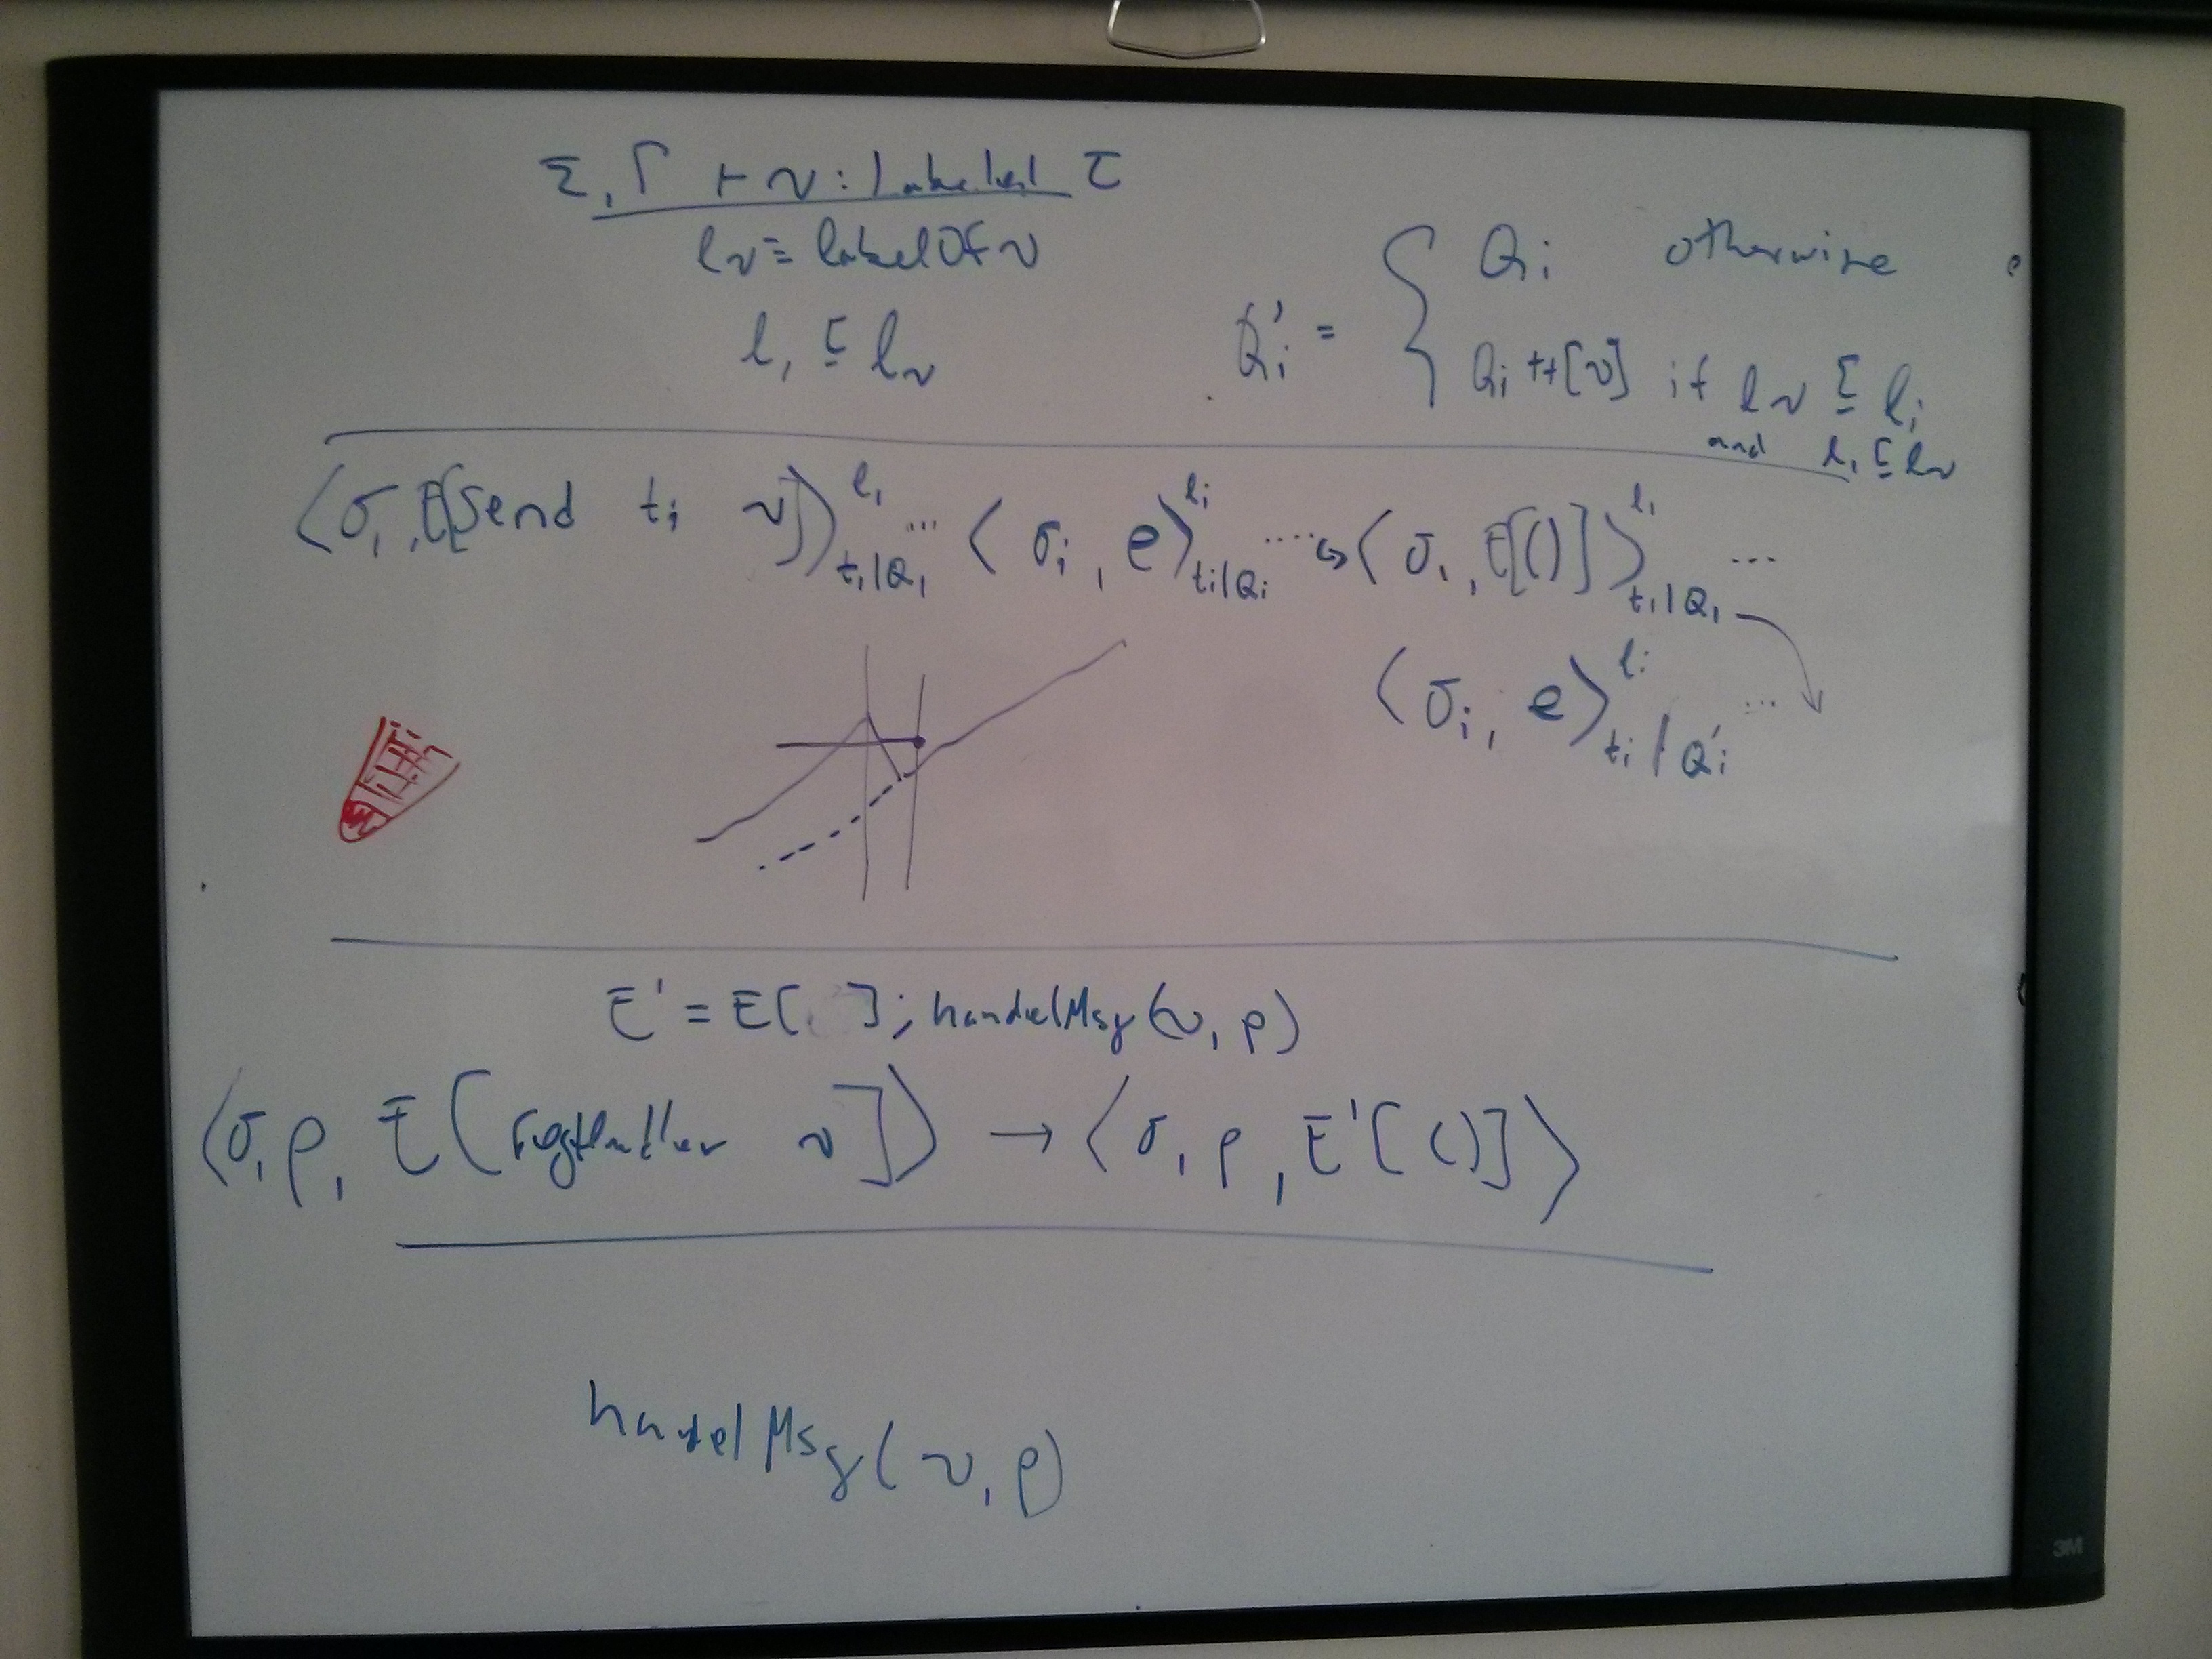 Σ, Γ ⊢ v : Labeled τ
l_v ≡ labelOf v
l₁ ⊑ l_v
Q'ᵢ = { Qᵢ otherwise
Qᵢ ++ [v] if l_v ⊑ lᵢ
and l₁ ⊑ l_v
⟨σ₁, E[Send tᵢ v]⟩^l₁_t₁|Q₁ ... ⟨σᵢ, e⟩^lᵢ_tᵢ|Qᵢ .... ↪ ⟨σ₁, E[()]⟩^l₁_t₁|Q₁ ...
⟨σᵢ, e⟩^lᵢ_tᵢ|Q'ᵢ ...
E' = E[ ]; handelMsg(v, ρ)
⟨σ, ρ, E[regHandler v]⟩ → ⟨σ, ρ, E'[()]⟩
handelMsg(v, ρ)
3M